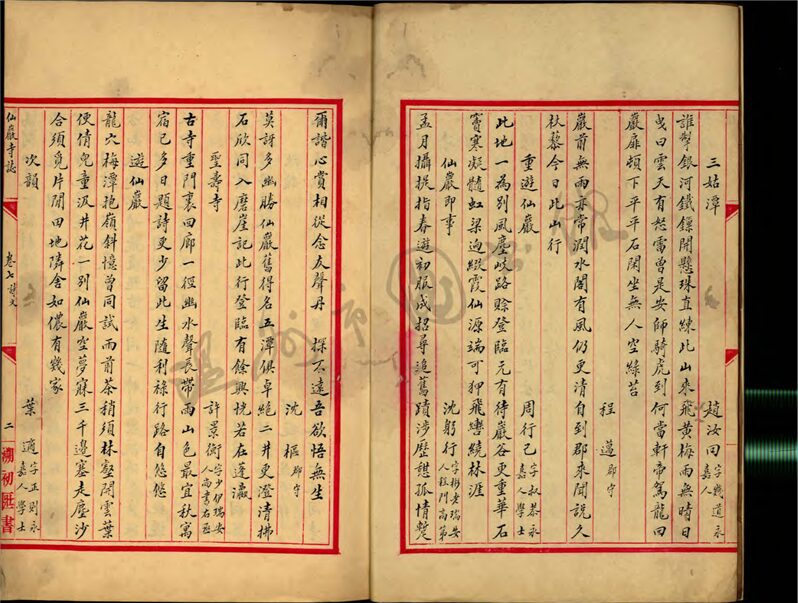 三姑潭 趙汝回字幾道永嘉人
誰挈銀河鐵鏢開懸珠直練此山來飛黃梅雨無時日
曳曰雲天有怒雷曾是安師騎虎到何當軒帝駕龍回
巖扉頻下平平石閑坐無人空綠苔
程邁郡守
巖前無雨亦常潤水閣有風仍更清自到郡來聞說久
杖藜今日此山行
重遊仙巖 周行己字叔恭永嘉人學士
此地一為別風塵歧路賒登臨元有待巖谷更重華石
竇寒凝髓虹梁迥綴霞仙源端可狎飛轡繞林涯
仙巖即事 沈躬行字彬老瑞安人程門高第
孟月攝提指春遊初服成招尋追舊蹟涉歷甜孤情蹔
爾諧心賞相從念友聲丹 探不遠吾欲悟無生
沈樞郡守
莫訝多幽勝仙巖舊得名五潭俱卓絕二井更澄清拂
石欣同入磨崖記此行登臨有餘興恍若在蓬瀛
聖壽寺 許景衡字少伊瑞安人尚書右丞
古寺重門裏回廊一徑幽水聲長帶雨山色最宜秋寓
宿已多日題詩更少留此生隨利祿行路自悠悠
遊仙巖
龍穴梅潭抱嶺斜憶曾同試雨前茶稍須林壑開雲葉
便倩兒童汲井花一別仙巖空夢寐三千邊塞走塵沙
合須覓片閒田地隣舍如儂有幾家
次韻 葉適字正則永嘉人學士
仙巖寺誌 卷七詩文 二 潮初匨書